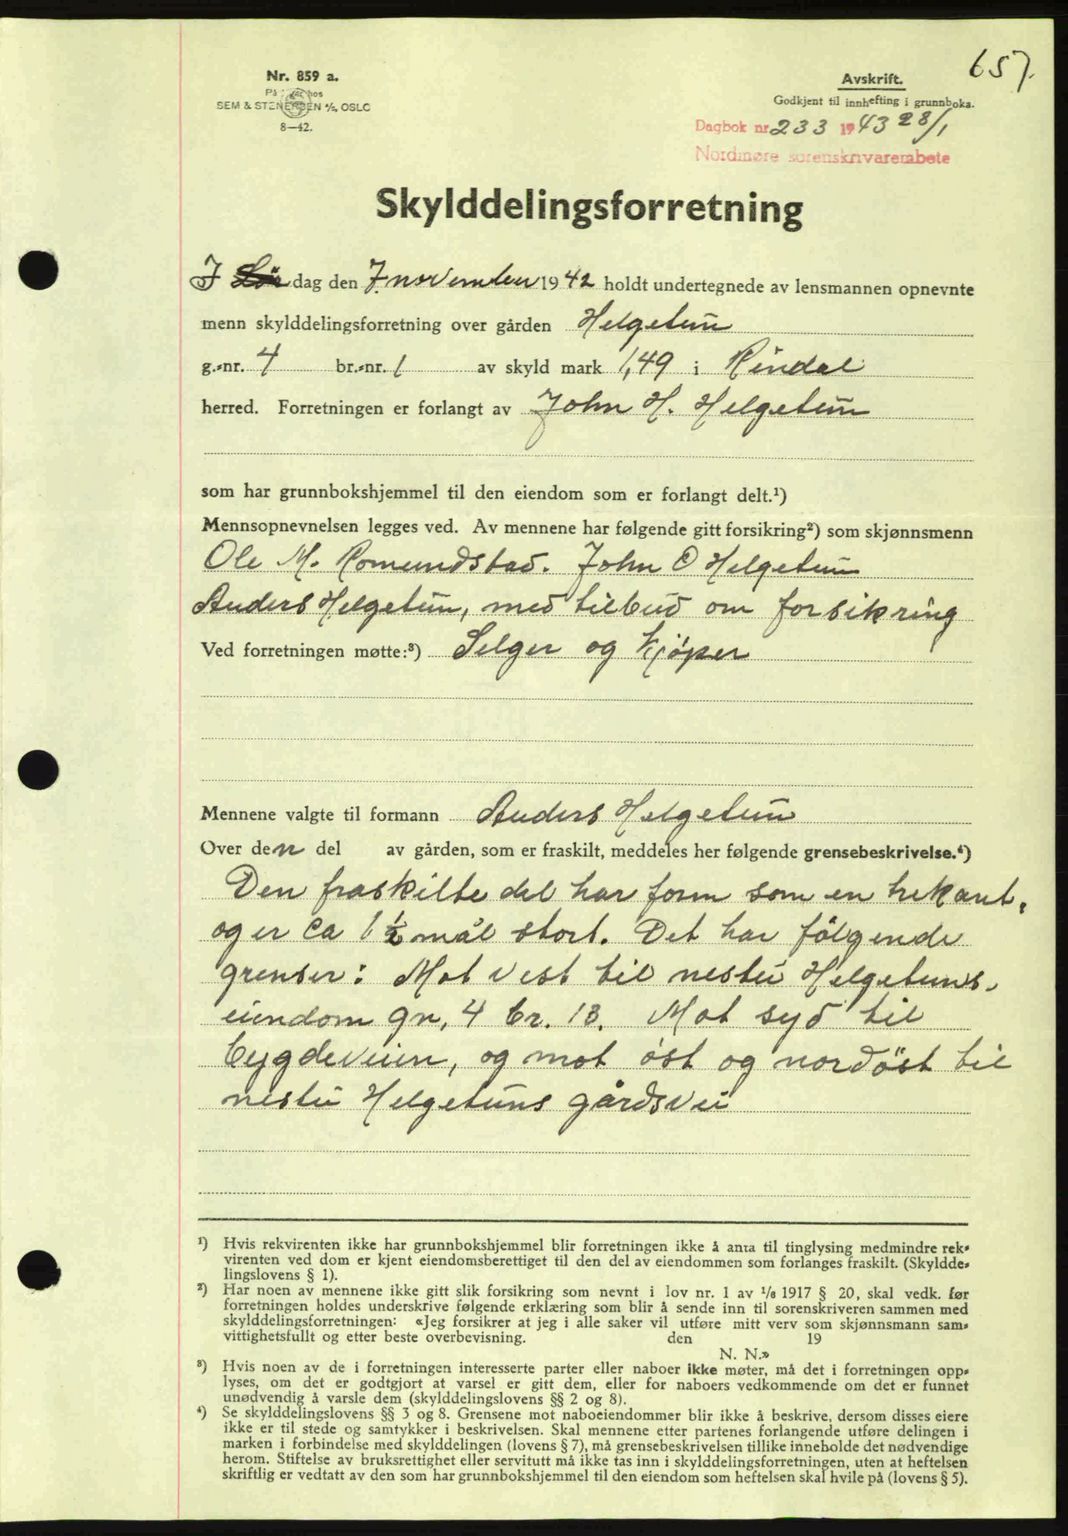 657.
Nr. 859 a.
På lager hos
SEM & STENERSEN A/S, OSLO
8—42.
Avskrift.
Godkjent til innhefting i grunnboka.
Dagbok nr 233 1943 28/1
Nordmøre sorenskrivarembete
Skylddelingsforretning
I dag den 7 november 1942 holdt undertegnede av lensmannen opnevnte
menn skylddelingsforretning over gården Helgetun
g.-nr. 4 br.-nr. 1 av skyld mark 1,49 i Rindal
herred. Forretningen er forlangt av John H. Helgetun
som har grunnbokshjemmel til den eiendom som er forlangt delt.¹)
Mennsopnevnelsen legges ved. Av mennene har følgende gitt forsikring²) som skjønnsmenn
Ole M. Romundstad. John O Helgetun
Anders Helgetun, med tilbud om forsikring
Ved forretningen møtte:³) Selger og kjøper
Mennene valgte til formann Anders Helgetun
Over den del av gården, som er fraskilt, meddeles her følgende grensebeskrivelse.⁴)
Den fraskilte del har form som en trekant,
og er ca 1 ½ mål stort. Det har følgende
grenser: Mot vest til nestu Helgetuns
eiendom gr, 4 br. 13. Mot syd til
bygdeveien, og mot øst og nordöst til
nestu Helgetuns gårdsvei
¹) Hvis rekvirenten ikke har grunnbokshjemmel blir forretningen ikke å anta til tinglysing medmindre rek-
virenten ved dom er kjent eiendomsberettiget til den del av eiendommen som forlanges fraskilt. (Skyldde-
lingslovens § 1).
²) Har noen av mennene ikke gitt slik forsikring som nevnt i lov nr. 1 av 1/8 1917 § 20, skal vedk. før
forretningen holdes underskrive følgende erklæring som blir å sende inn til sorenskriveren sammen med
skylddelingsforretningen: «Jeg forsikrer at jeg i alle saker vil utføre mitt verv som skjønnsmann sam-
vittighetsfullt og etter beste overbevisning. den 19
N. N.»
³) Hvis noen av de i forretningen interesserte parter eller naboer ikke møter, må det i forretningen opp-
lyses, om det er godtgjort at varsel er gitt dem, eller for naboers vedkommende om det er funnet
unødvendig å varsle dem (skylddelingslovens §§ 2 og 8).
⁴) Se skylddelingslovens §§ 3 og 8. Grensene mot naboeiendommer blir ikke å beskrive, dersom disses eiere
ikke er til stede og samtykker i beskrivelsen. Skal mennene etter partenes forlangende utføre delingen i
marken i forbindelse med skylddelingen (lovens § 7), må grensebeskrivelsen tillike inneholde det nødvendige
herom. Stiftelse av bruksrettighet eller servitutt må ikke tas inn i skylddelingsforretningen, uten at heftelsen
skriftlig er vedtatt av den som har grunnbokshjemmel til den eiendom som heftelsen skal hvile på (lovens § 5).